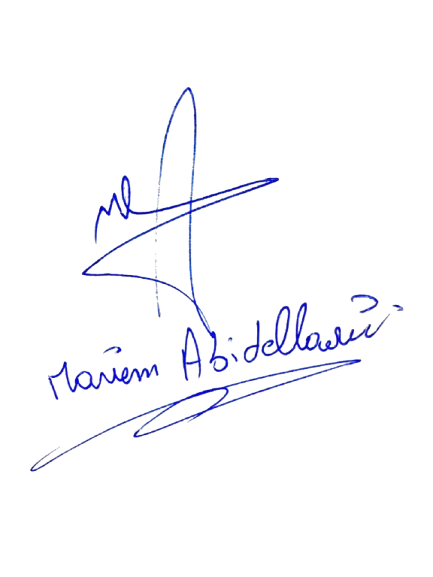 Mariem Abidellaoui